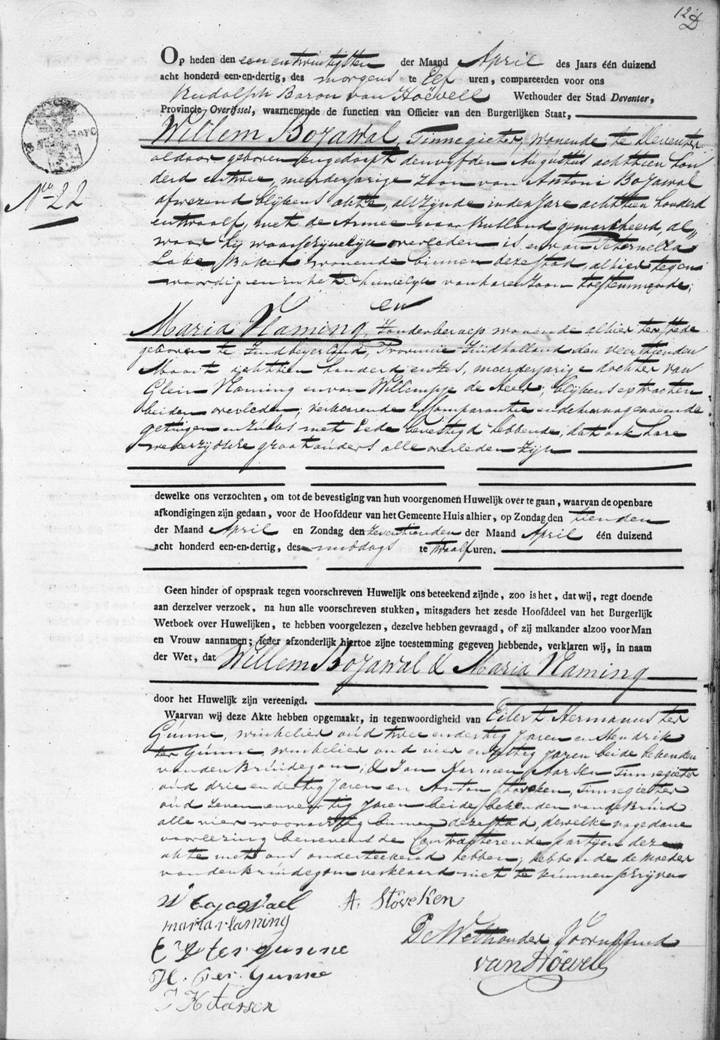 Op heden den een en twintigsten der Maand April des Jaars één duizend
acht honderd een-en-dertig, des morgens te Elf uren, compareerden voor ons
Rudolph Baron van Höevell Wethouder der Stad Deventer,
Provincie Overijssel, waarnemende de functien van Officier van den Burgerlijken Staat,
Willem Bozawal, Tinnegieter, wonende te Deventer
aldaar geboren en gedoopt den vijfden Augustus achttien hon
derd en twee, meerderjarige zoon van Antoni Bozawal
afwezend blijkens akte, als zijnde in den jare achttien honderd
en twaalf, met de Armee naar Rusland gemarcheerd, al
waar hij waarschijnelijk overleden is, en van
wonende binnen deze stad, alhier tegen
woordig en in het huwelijk van haren zoon toestemmende;
en
No 22
Maria Naming, zonder beroep wonende alhier ter stede
geboren te Zuidbeyerland, Provincie Zuidholland den veertienden
Maart achttien honderd en zes, meerderjarige dochter van
Naming en van Willempje de Heer, blijkens extracten
beiden overleden, verklarende Comparanten en de hierna genoemde
getuigen en zulks met Eede bevestigd hebbende, dat ook hare
wederzijdsche grootouders alle overleden zijn
dewelke ons verzochten, om tot de bevestiging van hun voorgenomen Huwelijk over te gaan, waarvan de openbare
afkondigingen zijn gedaan, voor de Hoofddeur van het Gemeente Huis alhier, op Zondag den tienden
der Maand April en Zondag den zeventienden der Maand April één duizend
acht honderd een-en-dertig, des middags te twaalf uren.
Geen hinder of opspraak tegen voorschreven Huwelijk ons beteekend zijnde, zoo is het, dat wij, regt doende
aan derzelver verzoek, na hun alle voorschreven stukken, mitsgaders het zesde Hoofddeel van het Burgerlijk
Wetboek over Huwelijken, te hebben voorgelezen, dezelve hebben gevraagd, of zij malkander alzoo voor Man
en Vrouw aannamen; ieder afzonderlijk hiertoe zijne toestemming gegeven hebbende, verklaren wij, in naam
der Wet, dat Willem Bozawal & Maria Naming
door het Huwelijk zijn vereenigd.
Waarvan wij deze Akte hebben opgemaakt, in tegenwoordigheid van Eilert Hermanus ter
Gunne, winkelier oud twee en dertig jaren en Hendrik
ter Gunne, winkelier oud vier en zestig jaren beide bekenden
van den Bruidegom, & Jan Hermen Tarsen Tinnegieter
oud drie en dertig jaren en Anton Stöveken, Tinnegieter
oud zeven en veertig jaren beide bekenden van de Bruid
alle vier woonachtig binnen deze stad, dewelke na gedane
voorlezing benevens de Contracterende partijen deze
akte met ons onderteekend hebben, hebbende de moeder
van den Bruidegom verklaard niet te kunnen schrijven
A. Stöveken
maria
E H ter gunne
De Wethouder voornoemd
H. ter Gunne
van Höevell
J H Tarsen